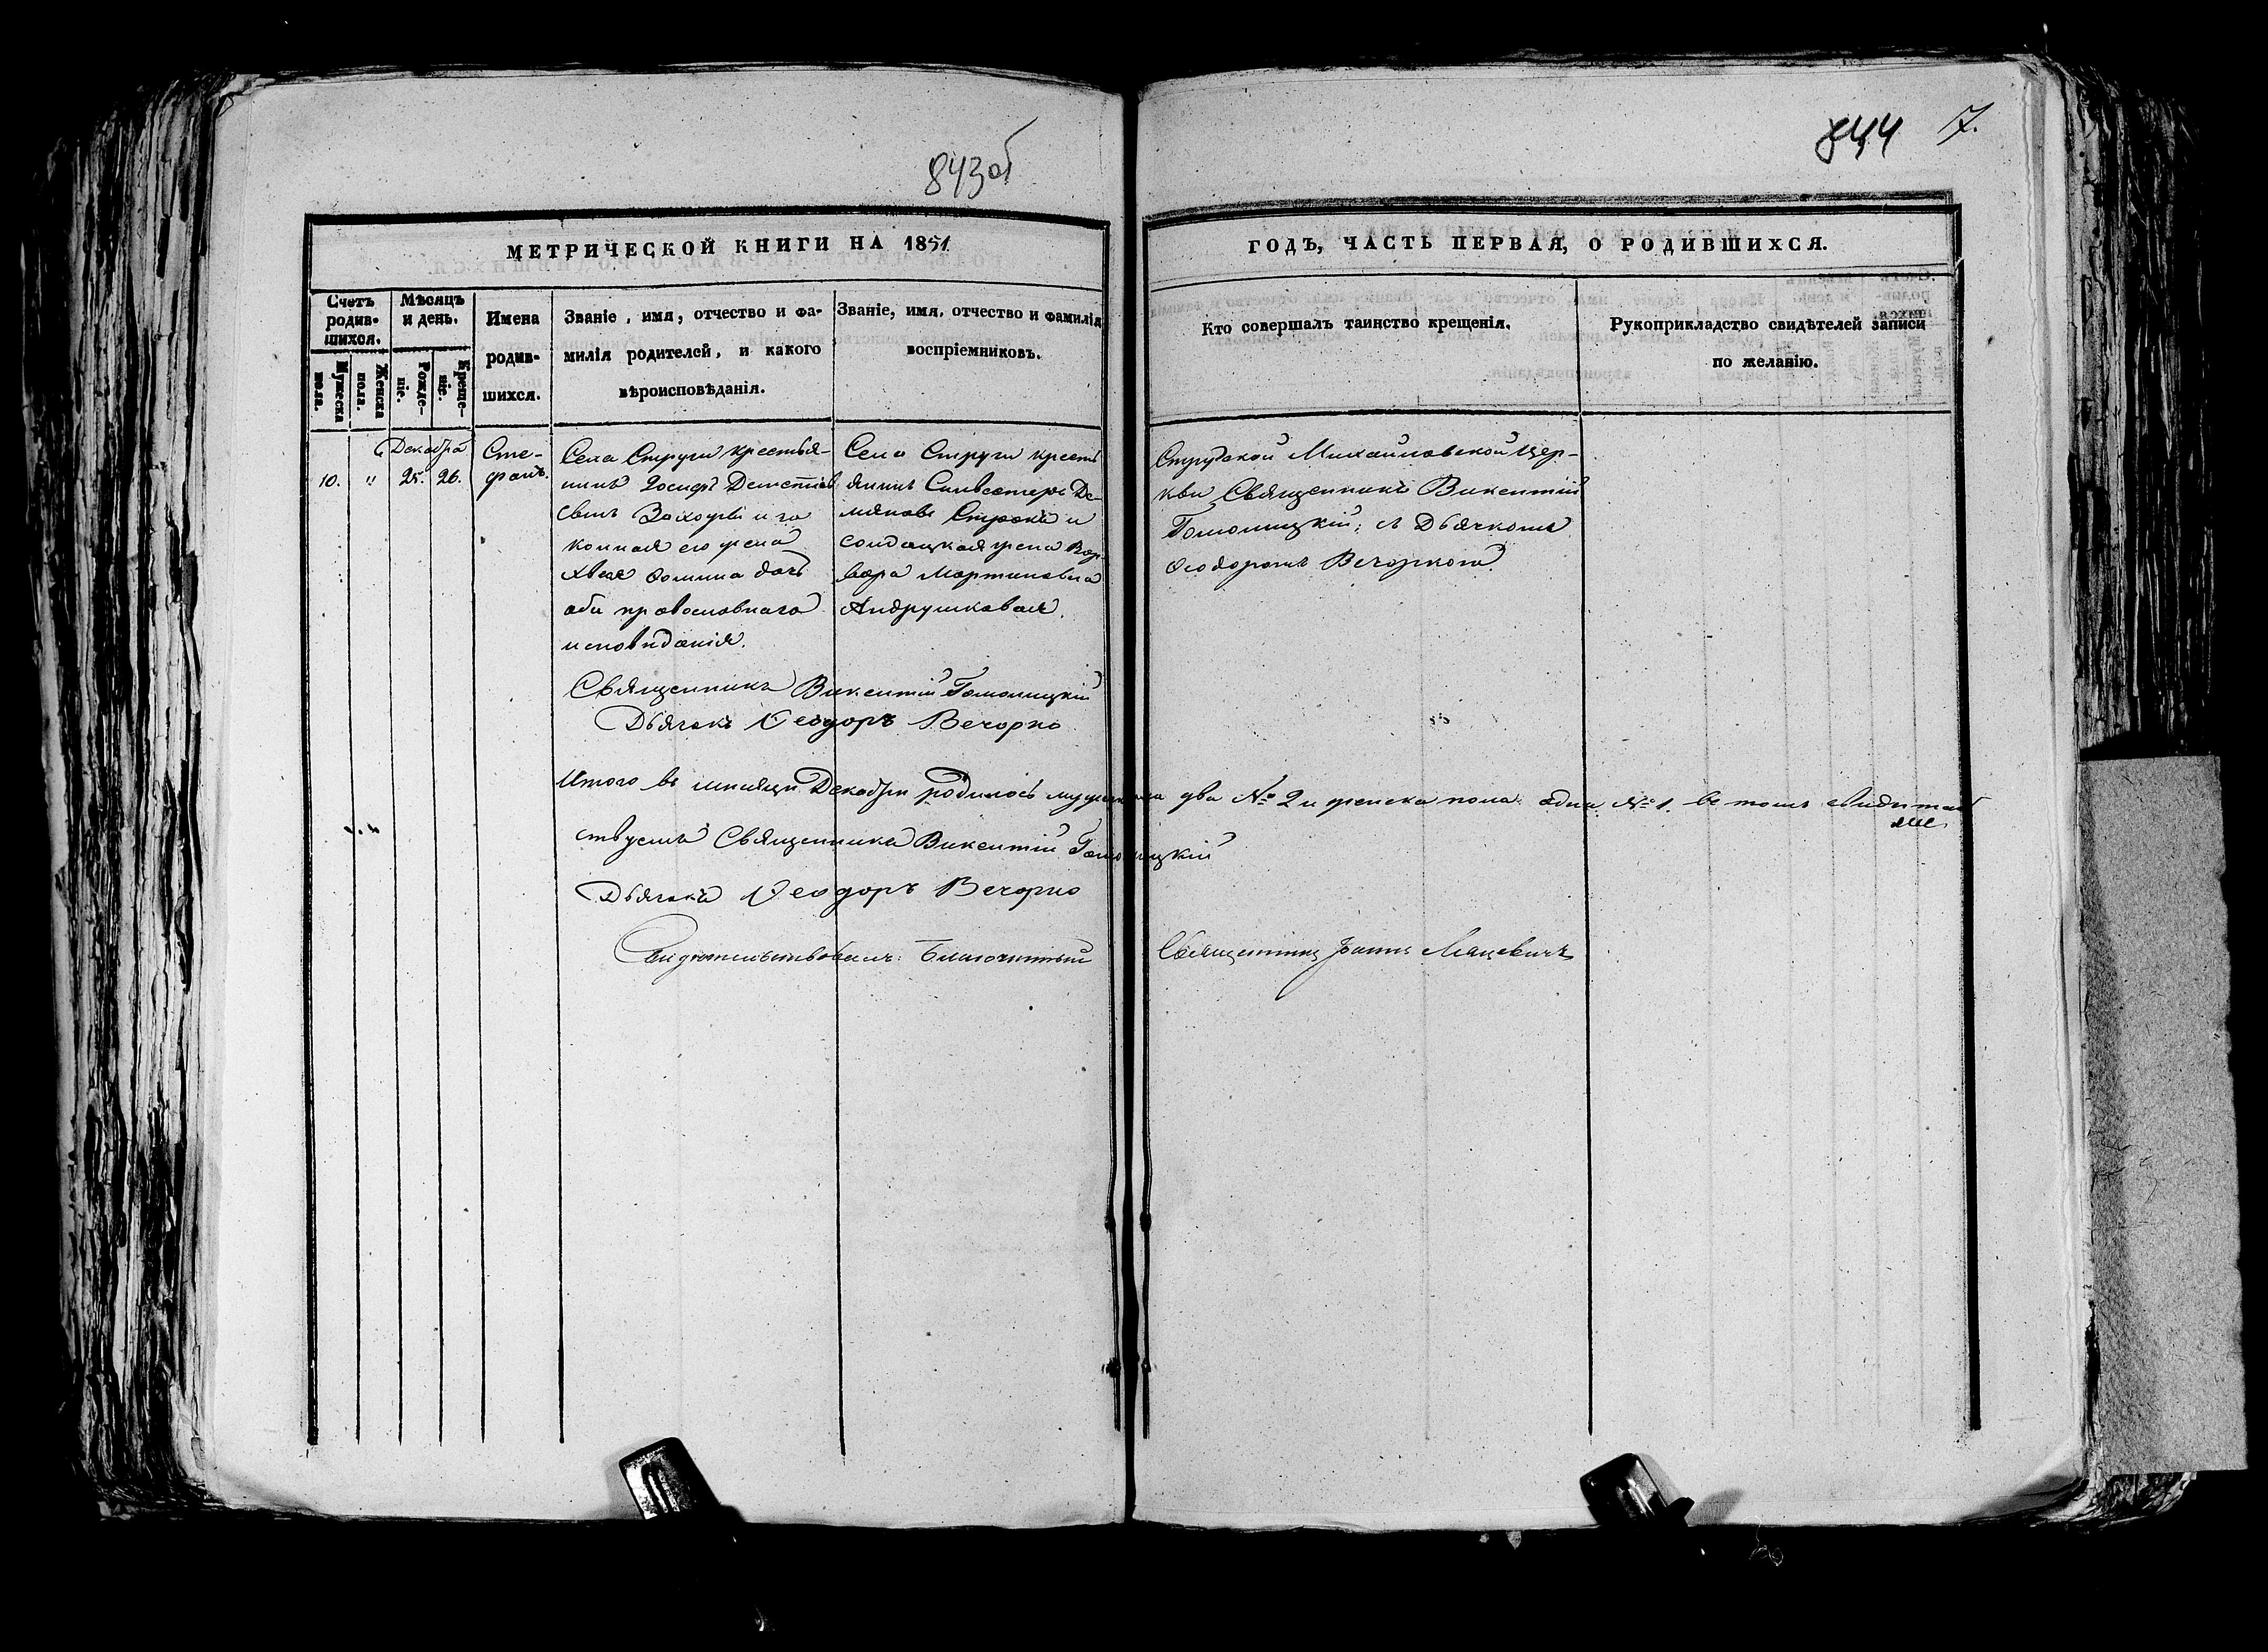 843об
844 7.
МЕТРИЧЕСКОЙ КНИГИ НА 1851
ГОДЪ, ЧАСТЬ ПЕРВАЯ, О РОДИВШИХСЯ.
Счетъ родив-шихся.
Мужеска пола.
Женска пола.
Мѣсяцъ и день.
Рожде-ніе.
Креще-ніе.
Имена родив-шихся.
Званіе, имя, отчество и фа-
милія родителей, и какого
вѣроисповѣданія.
Званіе, имя, отчество и фамилія
воспріемниковъ.
Кто совершалъ таинство крещенія.
Рукоприкладство свидѣтелей записи
по желанію.
Декабра
10. " 25. 26.
Сте-
фанъ.
Села Струги крестья-
нинъ Іосифъ
и за
конная его жена
дочь
оби православнаго
исповиданія.
Село Струги кресть
янинъ Сильвестеръ Де-
мяновъ и
солдацкая жена Вар-
вара Мартиновна
Андрушковая.
Стружской Михайловской Цер-
кви Священникъ Викентій
Гомолицкій; съ Дьячкомъ
Ѳеодоромъ Вечоркомъ
Священникъ Викентій Гомолицкій
Дьячокъ Ѳеодоръ Вечорко
Итого въ мисяци Декабри родилось мужеска пола два № 2 и женска пола одна № 1. въ томъ свидительствуемъ
ствуемъ Священникъ Викентій Гомолицкій
Дьячокъ Ѳеодоръ Вечорко
Свидѣтельствовалъ: Благочинный Священникъ Іоаннъ Мацевичъ